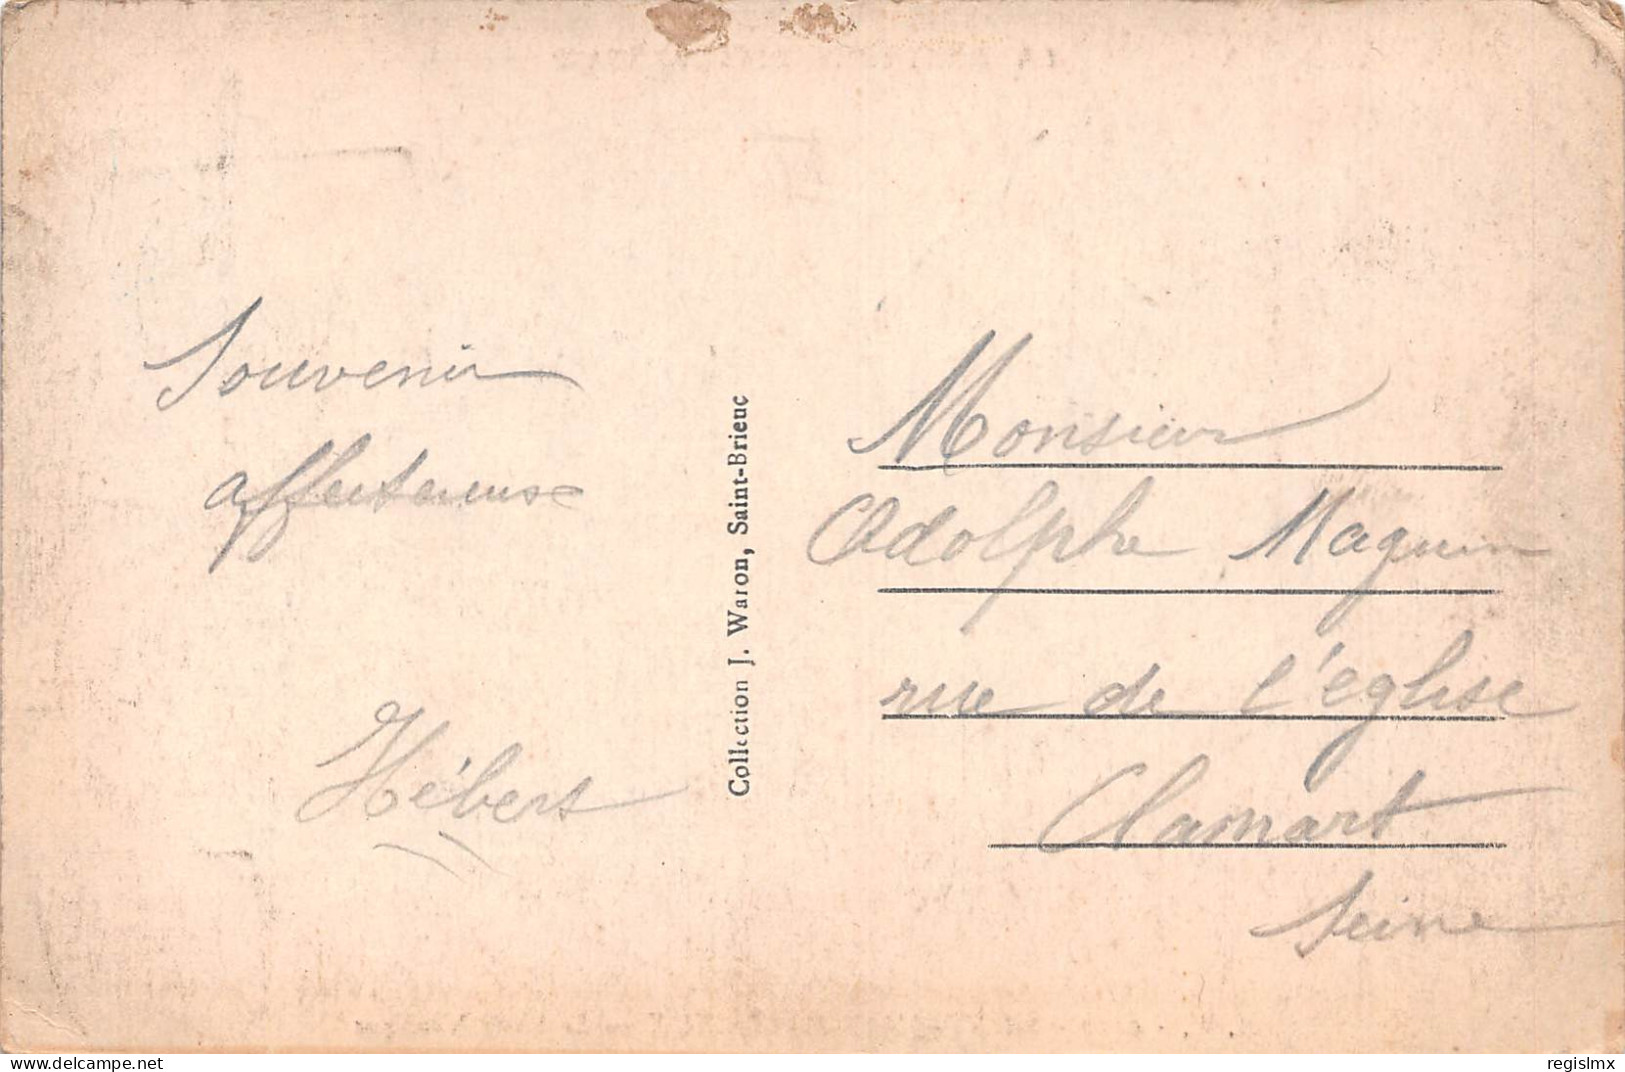 Souvenir
affectueuse
Hébert
Collection J. Waron, Saint-Brieuc
Monsieur
Adolphe Maquin
rue de l'église
Clamart
Seine
www.delcampe.net
regislmx